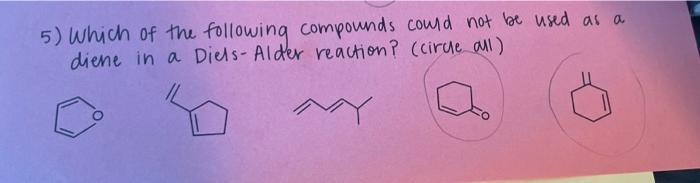 5) Which of the following compounds could not be used as a
diene in a Diels-Alder reaction? (circle all)
O
O